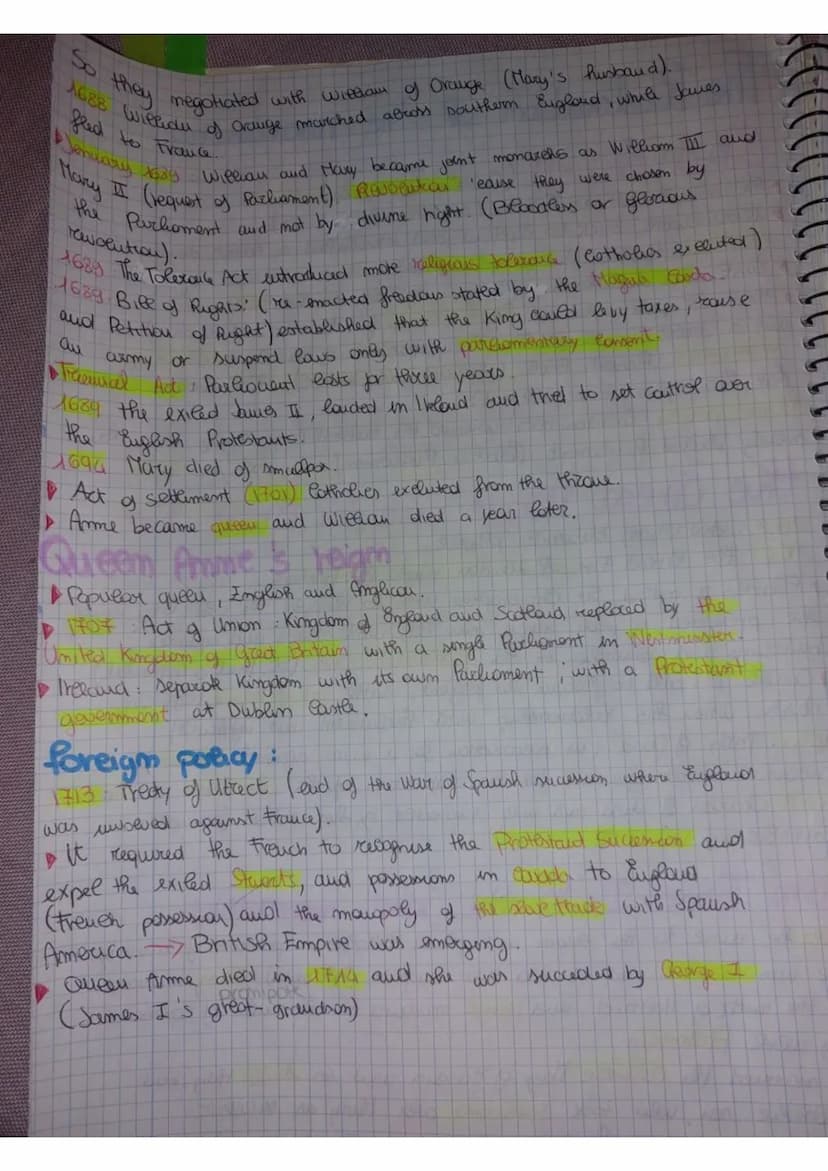 So they negotiated with William of Orange (Mary's husband).
1688 William of Orange marched across southern England, while James
fled to France.
January 1689 William and Mary became joint monarchs as William III and
Mary II (request of Parliament). Revolution 'cause they were chosen by
the Parliament and not by divine right. (Bloodless or glorious
revolution).
1689 The Tolerance Act introduced more religious tolerance (Catholics excluted)
1689 Bill of Rights: (re-enacted freedoms stated by the Magna Carta
and Petition of Right) established that the King could levy taxes, raise
an army or suspend laws only with parliamentary consent.
Triennial Act: Parliament lasts for three years.
1689 the exiled James II, landed in Ireland and tried to set control over
the English Protestants.
1694 Mary died of smallpox.
Act of settlement (1701) Catholics excluted from the throne.
Anne became queen and William died a year later.
Queen Anne's reign
Popular queen, English and Anglican.
1707 Act of Union: Kingdom of England and Scotland replaced by the
United Kingdom of Great Britain with a single Parliament in Westminster.
Ireland: separate Kingdom with its own Parliament; with a Protestant
government at Dublin Castle.
foreign policy:
1713 Treaty of Utrect (end of the War of Spanish succession where England
was involved against France).
It required the French to recognise the Protestant Succession and
expel the exiled Stuarts, and possessions in Canada to England
(French possession) and the monopoly of the slave trade with Spanish
America. → British Empire was emerging.
Queen Anne died in 1714 and she was succeded by George I
(James I's great-grandson)